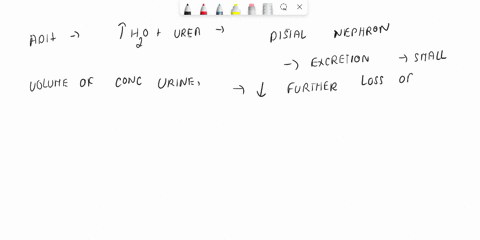 ADH → ↑ H₂O + UREA → DISTAL NEPHRON
→ EXCRETION → SMALL
VOLUME OF CONC URINE, → ↓ FURTHER LOSS OF